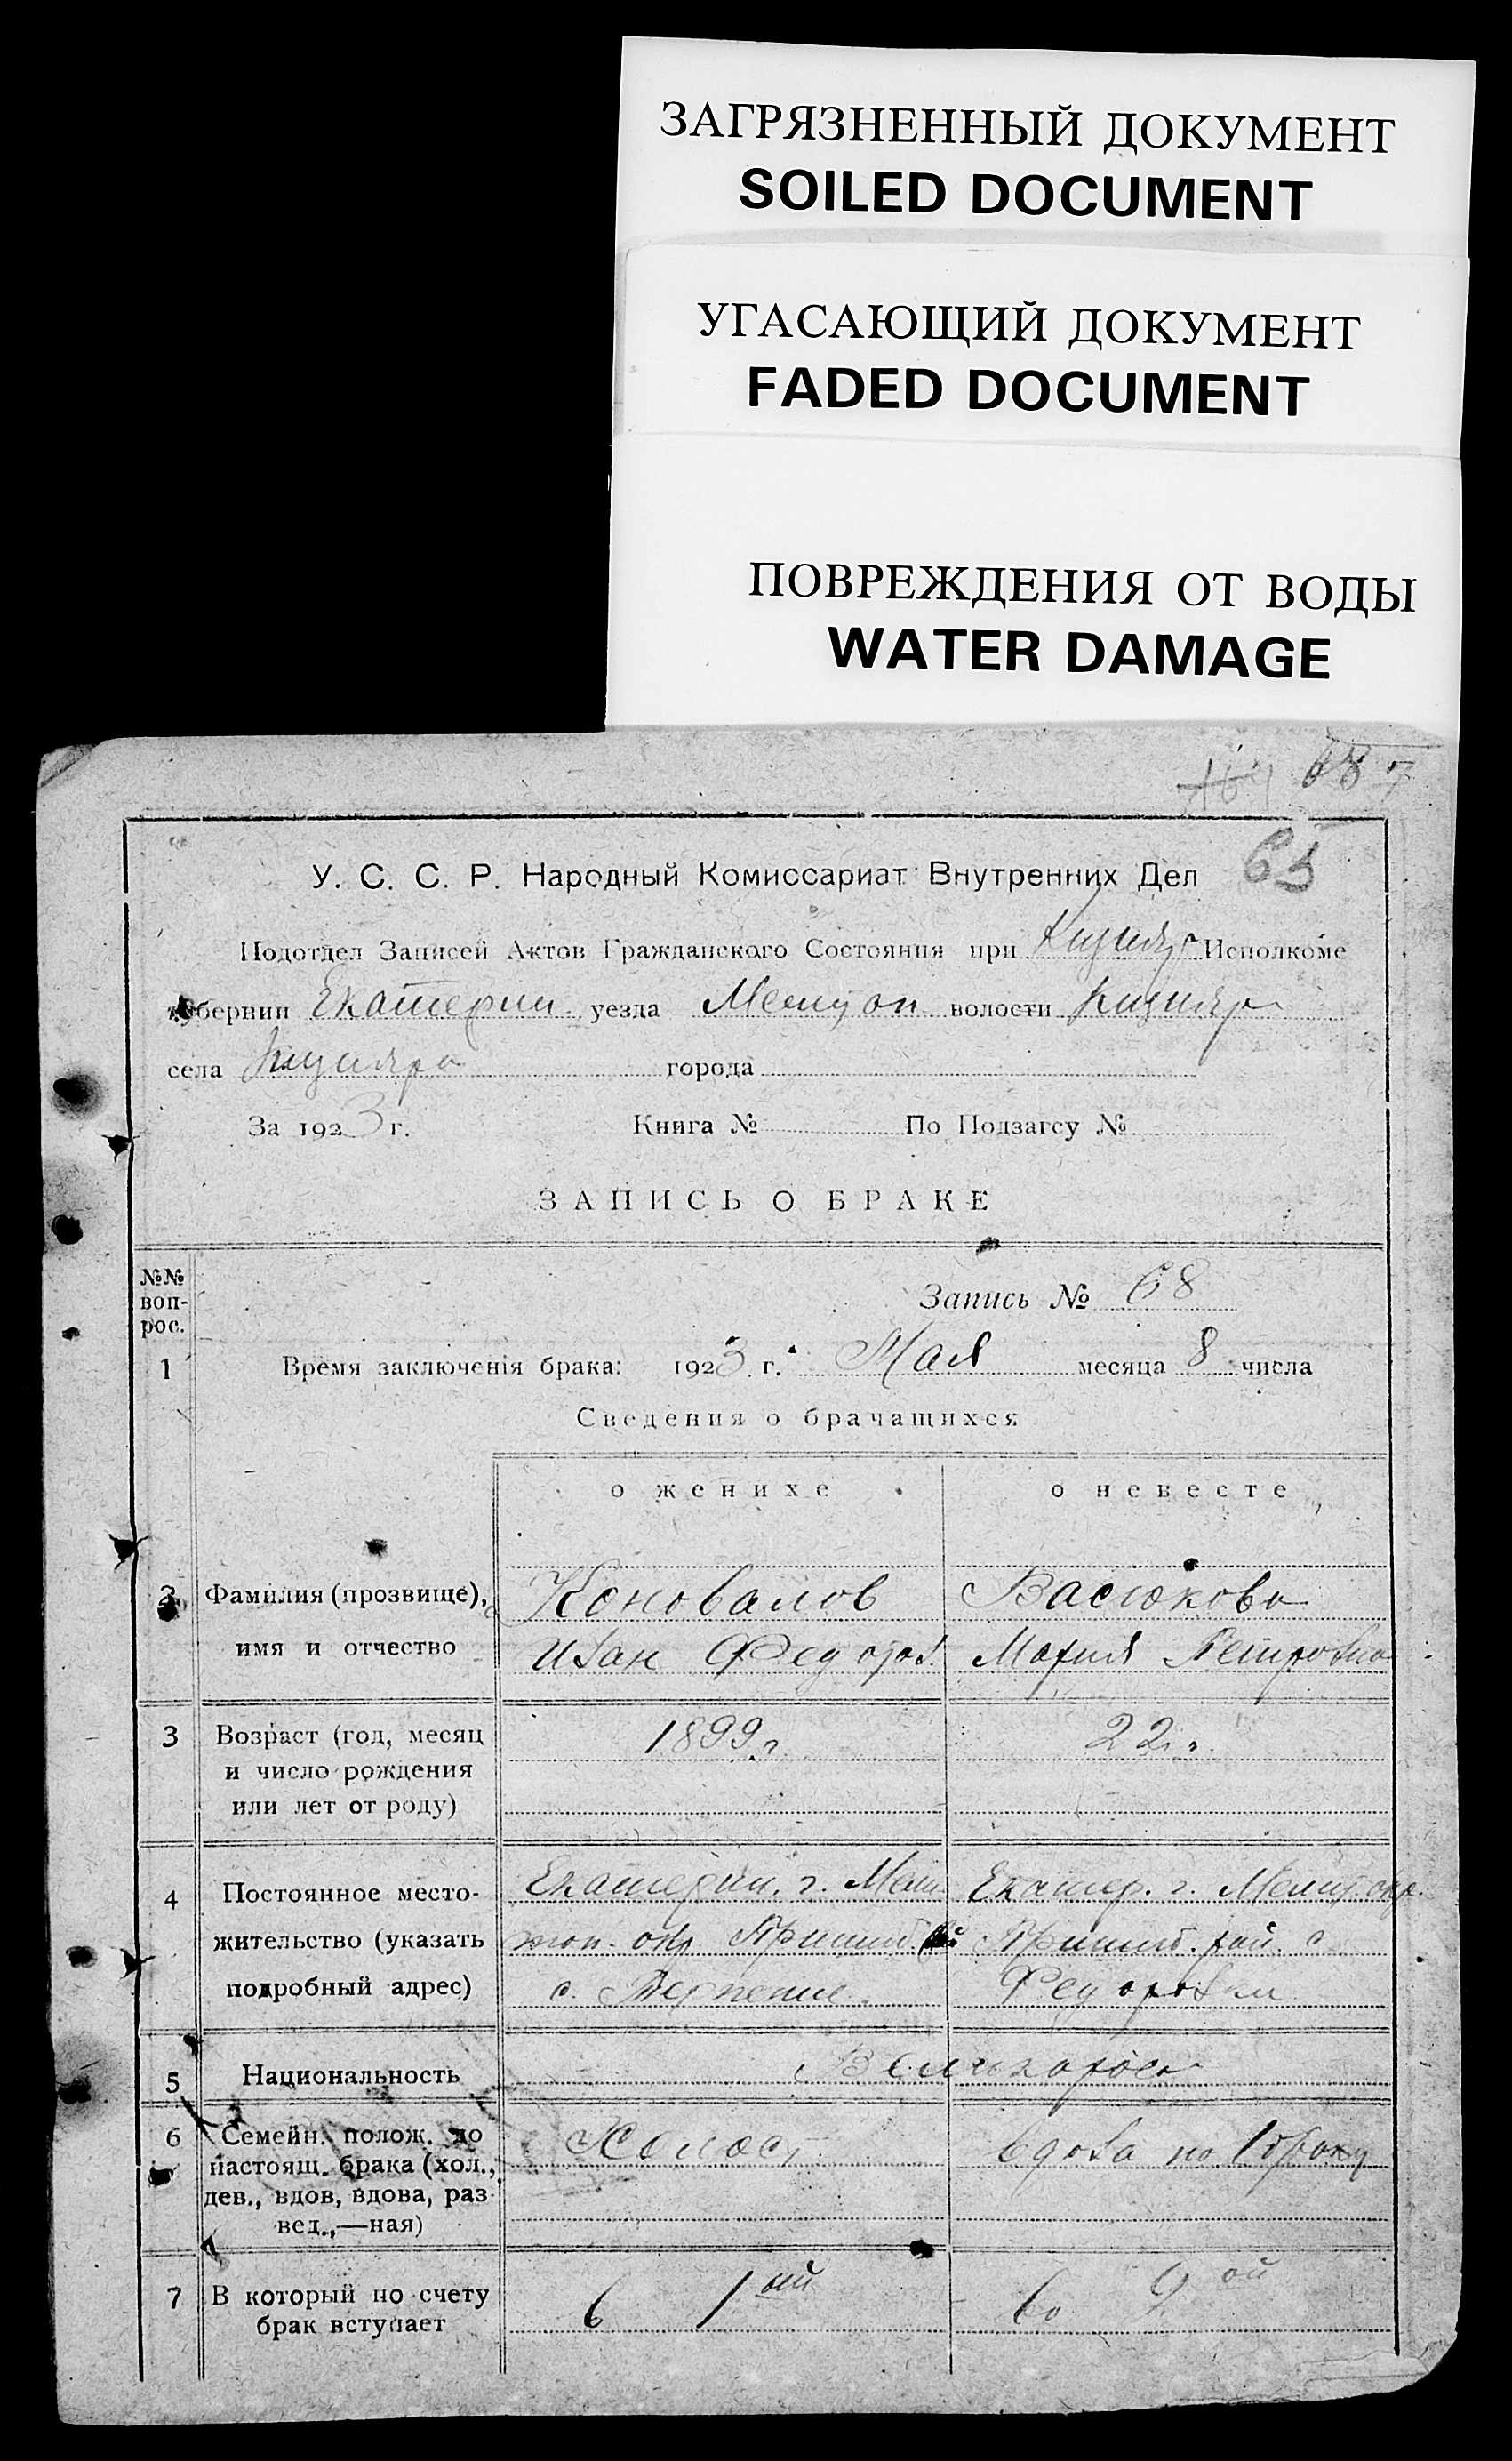 ЗАГРЯЗНЕННЫЙ ДОКУМЕНТ
SOILED DOCUMENT
УГАСАЮЩИЙ ДОКУМЕНТ
FADED DOCUMENT
ПОВРЕЖДЕНИЯ ОТ ВОДЫ
WATER DAMAGE
68
65
У. С. С. Р. Народный Комиссариат Внутренних Дел
Подотдел Записей Актов Гражданского Состояния при Кизияр Исполкоме
губернии Екатерин. уезда Мелитоп волости Кизияр
села Кизияра города
За 1923 г. Книга № По Подзагсу №
ЗАПИСЬ О БРАКЕ
№№ воп-рос.
Запись № 68
1 Время заключенія брака: 1923 г. Мая месяца 8 числа
Сведения о брачащихся
о женихе о невесте
2 Фамилия (прозвище), Коновалов Васюкова
имя и отчество Иван Федоров. Мария Петровна
3 Возраст (год, месяц 1899 г 22 г.
и число рождения
или лет от роду)
4 Постоянное место- Екатерин. г. Мели Екатер. г. Мелит. окр.
жительство (указать топ. окр Пришиб Пришиб. рай. с
подробный адрес) с. Терпение Федоровки
5 Национальность Великоросы
6 Семейн. полож. до Холост вдова по 1 браку
настоящ. брака (хол.,
дев., вдов, вдова, раз-
вед.,—ная)
7 В который по счету в 1ый во 2ой
брак вступает